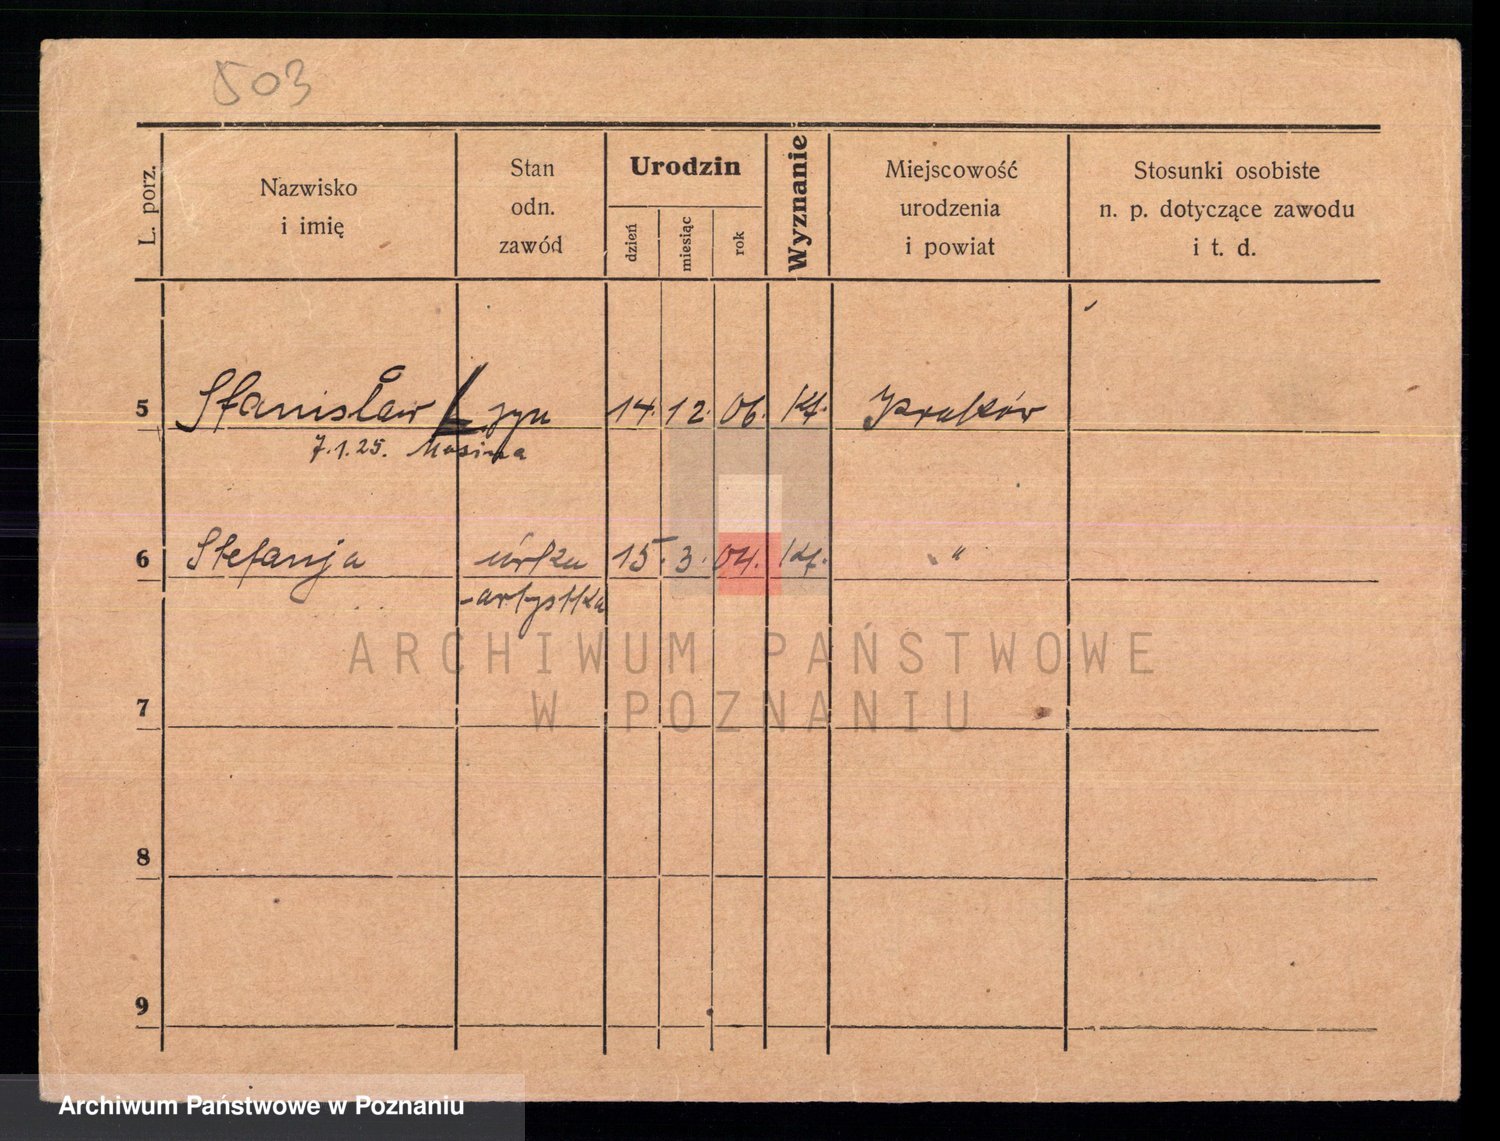 503
L. porz.
Nazwisko
i imię
Stan
odn.
zawód
Urodzin
dzień
miesiąc
rok
Wyznanie
Miejscowość
urodzenia
i powiat
Stosunki osobiste
n. p. dotyczące zawodu
i t. d.
5 Stanisław syn 14. 12. 06. kt. Kraków
7.1.25. Mosina
6 Stefanja córka 15. 3. 04. kt. "
-artystka
7
8
9
ARCHIWUM PAŃSTWOWE
W POZNANIU
Archiwum Państwowe w Poznaniu